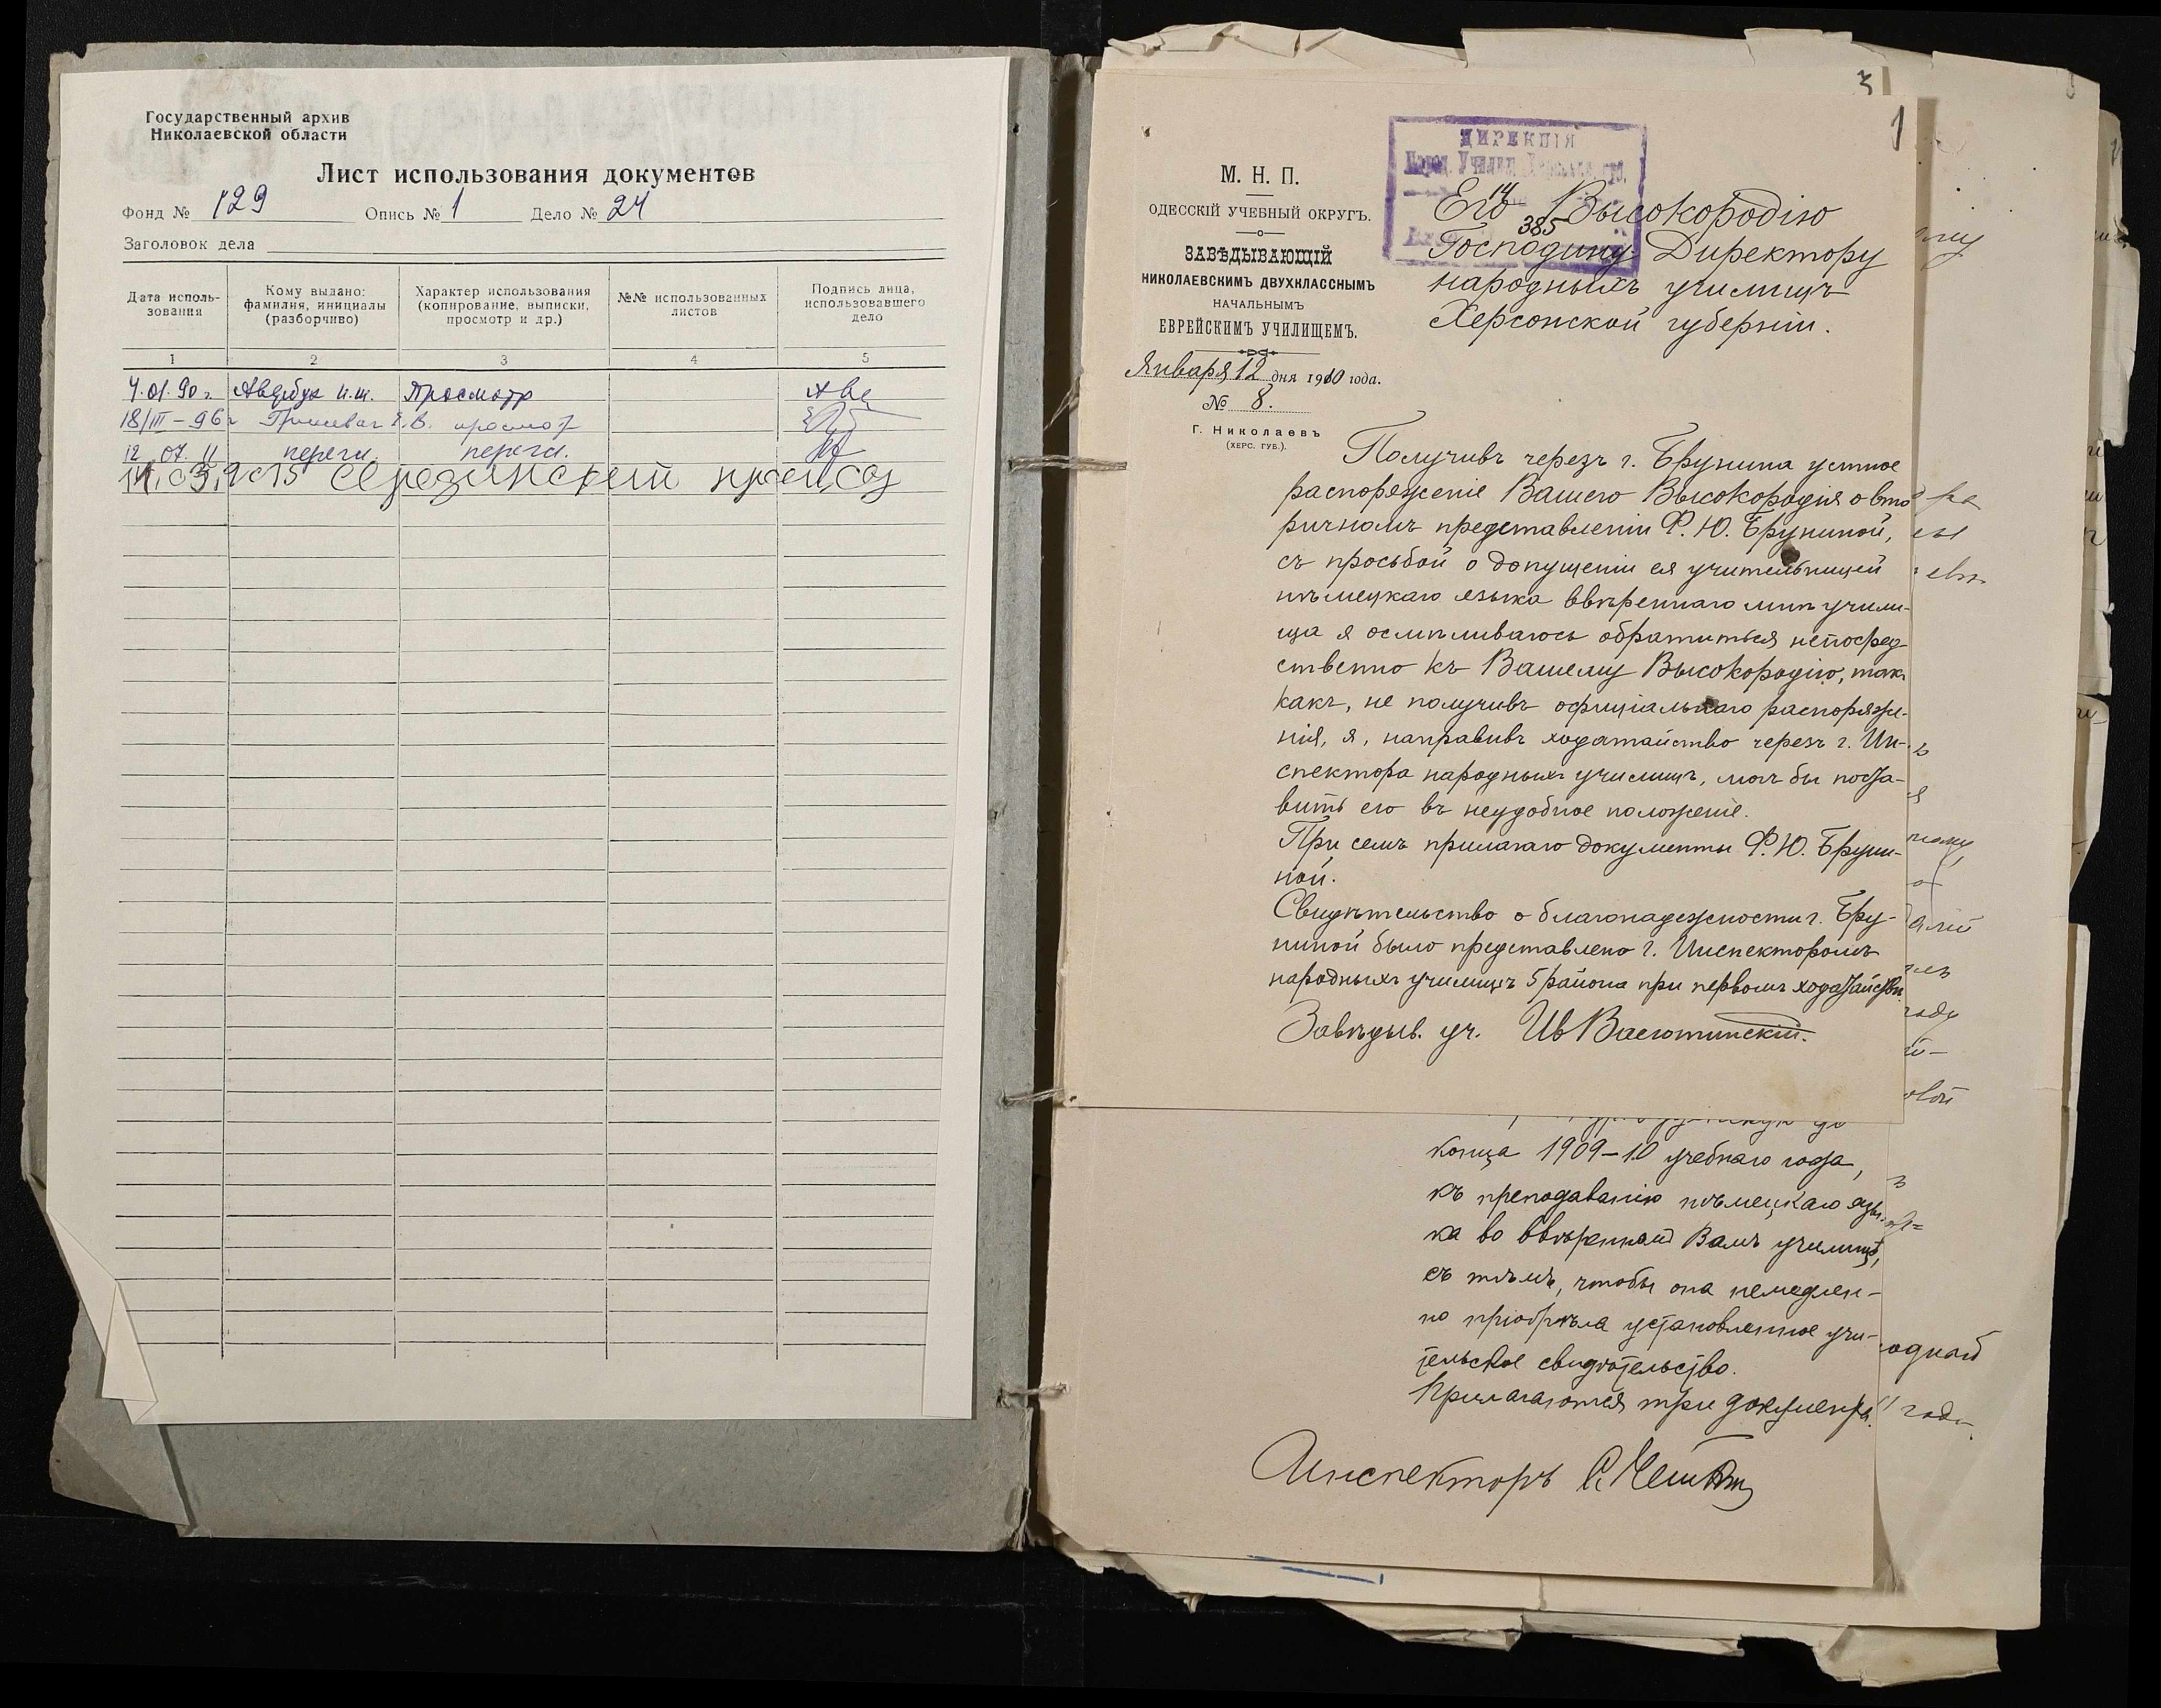 Государственный архив
Николаевской области
Лист использования документов
Фонд № 129 Опись № 1 Дело № 24
Заголовок дела
Дата исполь-
зования
Кому выдано:
фамилия, инициалы
(разборчиво)
Характер использования
(копирование, выписки,
просмотр и др.)
№№ использованных
листов
Подпись лица,
использовавшего
дело
1 2 3 4 5
4.01.90 г. Авербух И.Ш. Просмотр Аве
18/III-96 г Е.В. просмот
12 07. 11
14.03.2015
3
1
ДИРЕКЦІЯ
Народ. Училищ. Херсонск. губ.
14
385
М. Н. П.
ОДЕССКІЙ УЧЕБНЫЙ ОКРУГЪ.
ЗАВѢДЫВАЮЩІЙ
НИКОЛАЕВСКИМЪ ДВУХКЛАССНЫМЪ
НАЧАЛЬНЫМЪ
ЕВРЕЙСКИМЪ УЧИЛИЩЕМЪ.
Января 12 дня 1910 года.
№ 8.
Г. Николаевъ
(ХЕРС. ГУБ.).
Его Высокородію
Господину Директору
народныхъ училищъ
Херсонской губерніи.
Получивъ черезъ г. Брунина устное
распоряженіе Вашего Высокородія о вто
ричномъ представленіи Ф. Ю. Бруниной,
съ просьбой о допущеніи ея учительницей
нѣмецкаго языка ввѣреннаго мнѣ учили-
ща я осмѣливаюсь обратиться непосред-
ственно къ Вашему Высокородію, так
какъ, не получивъ офиціальнаго распоряже-
нія, я, направивъ ходатайство черезъ г. Ин-
спектора народныхъ училищъ, могъ бы поста-
вить его въ неудобное положеніе.
При семъ прилагаю документы Ф. Ю. Бруни-
ной.
Свидѣтельство о благонадежности г. Бру-
ниной было представлено г. Инспекторомъ
народныхъ училищъ 5 района при первомъ ходатайствѣ
Завѣдыв. уч. Ив Васютинскій.
конца 1909-10 учебнаго года,
къ преподаванію нѣмецкаго язы-
ка во ввѣренномъ Вамъ училищѣ,
съ тѣмъ, чтобы она немедлен-
но пріобрѣла установленное учи-
тельское свидѣтельство.
Прилагаются три документа.
Инспекторъ